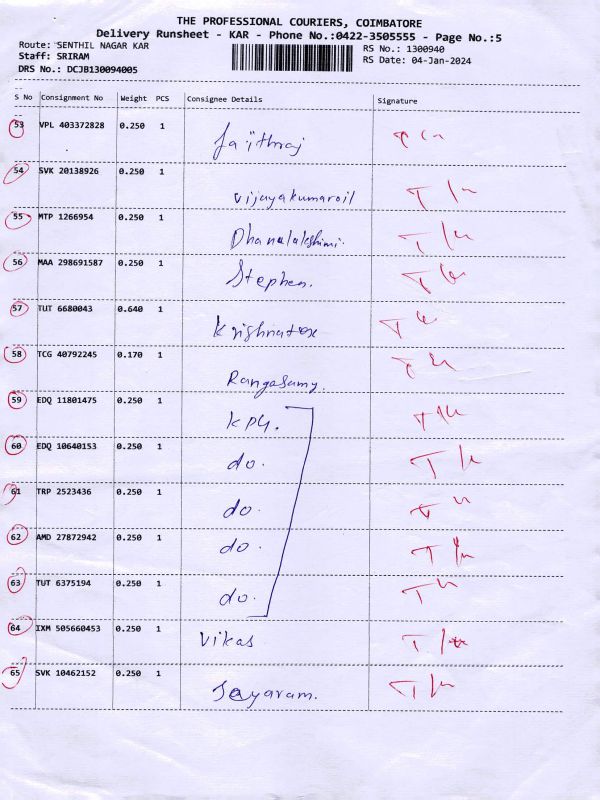 THE PROFESSIONAL COURIERS, COIMBATORE
Delivery Runsheet - KAR - Phone No.:0422-3505555 - Page No.:5
Route: SENTHIL NAGAR KAR RS No.: 1300940
Staff: SRIRAM RS Date: 04-Jan-2024
DRS No.: DCJB130094005
S No Consignment No Weight PCS Consignee Details Signature
53 VPL 403372828 0.250 1
54 SVK 20138926 0.250 1
Vijayakumar oil
55 MTP 1266954 0.250 1
Dhanalakshimi.
56 MAA 298691587 0.250 1
Stephen.
57 TUT 6680043 0.640 1
Krishnatex
58 TCG 40792245 0.170 1
Rangasamy.
59 EDQ 11801475 0.250 1
KPY.
60 EDQ 10640153 0.250 1
do.
61 TRP 2523436 0.250 1
do.
62 AMD 27872942 0.250 1
do.
63 TUT 6375194 0.250 1
do.
64 IXM 505660453 0.250 1
Vikas
65 SVK 10462152 0.250 1
Jayaram.